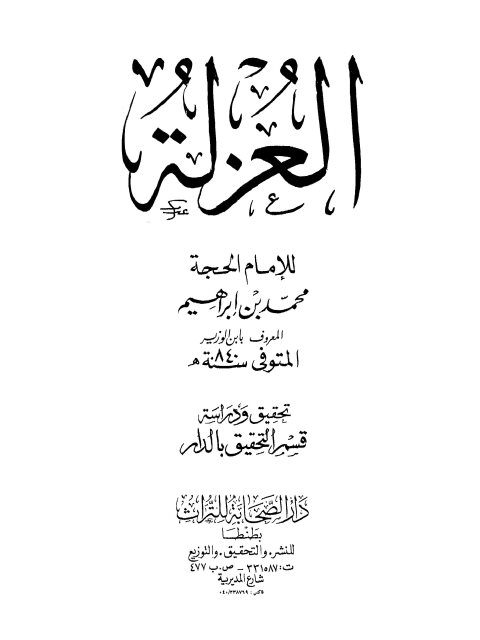 العُزلَة
للإمام الحجة
محمد بن إبراهيم
المعروف بابن الوزير
المتوفى سنة ٨٤٠ هـ
تحقيق ودراسة
قسم التحقيق بالدار
دار الصحابة للتراث
بطنطا
للنشر . والتحقيق . والتوزيع
ت: ٣٣١٥٨٧ - ص.ب ٤٧٧
شارع المديرية